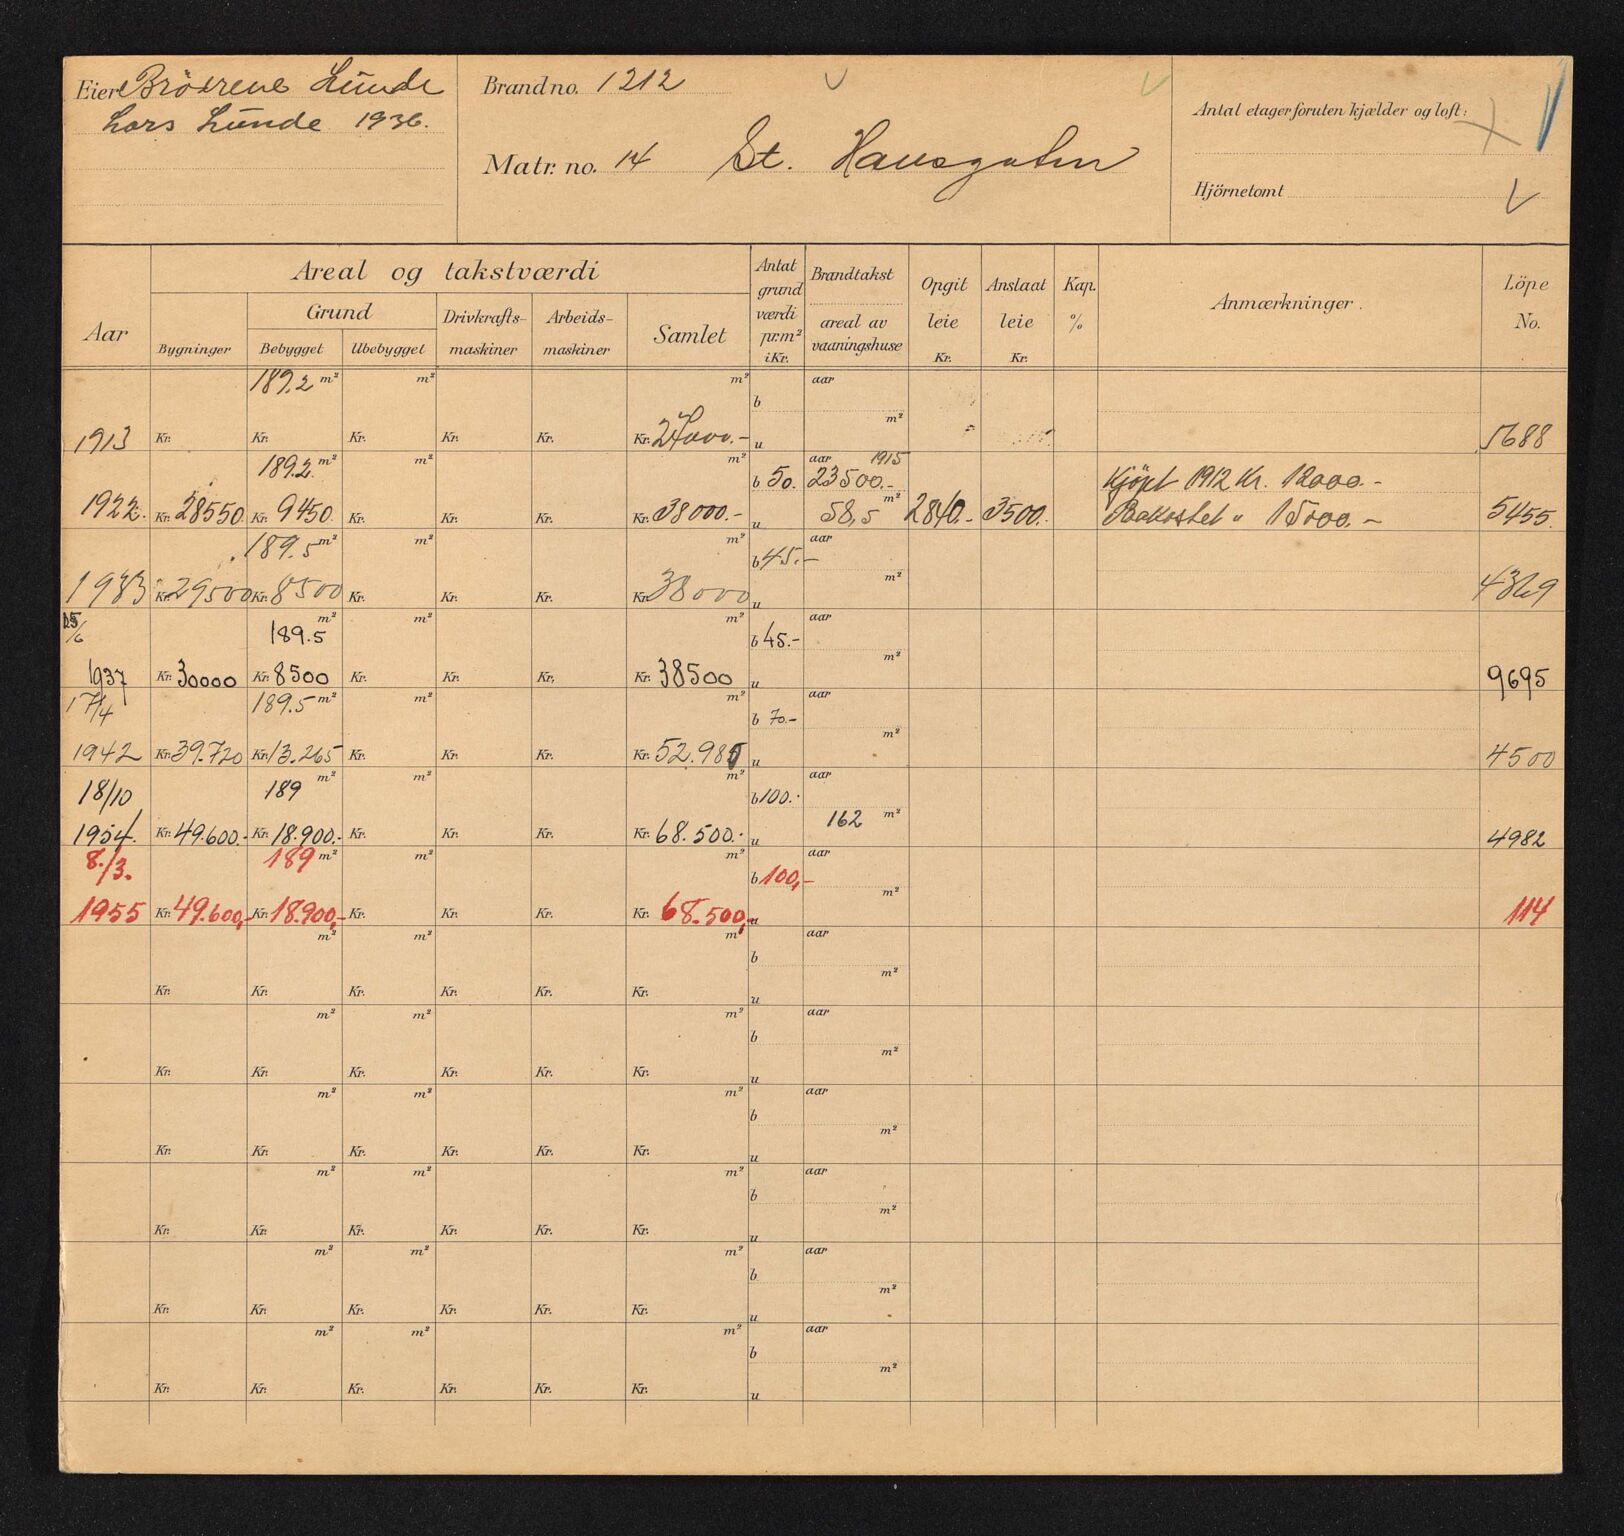 Eier Brödrene Lunde
Lars Lunde 1936.
Brand no. 1212
Matr. no. 14 St. Hansgaten
Antal etager foruten kjælder og loft:
Hjörnetomt
Aar
Areal og takstværdi
Bygninger
Grund
Bebygget
Ubebygget
Drivkrafts-
maskiner
Arbeids-
maskiner
Samlet
Antat
grund
værdi
pr. m²
i Kr.
Brandtakst
areal av
vaaningshuse
Opgit
leie
Kr.
Anslaat
leie
Kr.
Kap.
%
Anmærkninger.
Löpe
No.
189.2 m² m² m² aar
b
m²
1913 Kr. Kr. Kr. Kr. Kr. Kr. 27000.- u 5688
189.2 m² m² m² aar 1915
b 50. 23500.- Kjöpt 1912 Kr. 12000.-
m²
1922. Kr. 28550 Kr. 9450 Kr. Kr. Kr. Kr. 38000.- u 58,5 2840.- 3500.- Bekostet " 15000.- 5455.
189.5 m² m² m² aar
b 45.-
m²
1933 Kr. 29500 Kr. 8500 Kr. Kr. Kr. Kr. 38000 u 4369
15/6 189.5 m² m² m² aar
b 45.-
m²
1937 Kr. 30000 Kr. 8500 Kr. Kr. Kr. Kr. 38500 u 9695
17/4 189.5 m² m² m² aar
b 70.-
m²
1942 Kr. 39.720 Kr. 13.265 Kr. Kr. Kr. Kr. 52.985 u 4500
18/10 189 m² m² m² aar
b 100.-
162 m²
1954. Kr. 49.600.- Kr. 18.900.- Kr. Kr. Kr. Kr. 68.500.- u 4982
8./3. 189 m² m² m² aar
b 100,-
m²
1955 Kr. 49.600,- Kr. 18.900,- Kr. Kr. Kr. Kr. 68.500,- u 114
m² m² m² aar
b
m²
Kr. Kr. Kr. Kr. Kr. Kr. u
m² m² m² aar
b
m²
Kr. Kr. Kr. Kr. Kr. Kr. u
m² m² m² aar
b
m²
Kr. Kr. Kr. Kr. Kr. Kr. u
m² m² m² aar
b
m²
Kr. Kr. Kr. Kr. Kr. Kr. u
m² m² m² aar
b
m²
Kr. Kr. Kr. Kr. Kr. Kr. u
m² m² m² aar
b
m²
Kr. Kr. Kr. Kr. Kr. Kr. u